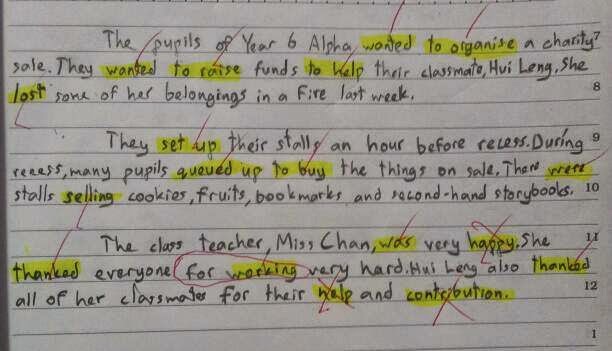 The pupils of Year 6 Alpha wanted to organise a charity
sale. They wanted to raise funds to help their classmate, Hui Leng. She
8
lost some of her belongings in a fire last week.
They set up their stalls an hour before recess. During
9
recess, many pupils queued up to buy the things on sale. There were
stalls selling cookies, fruits, bookmarks and second-hand storybooks.
10
The class teacher, Miss Chan, was very happy. She
11
thanked everyone for working very hard. Hui Leng also thanked
12
all of her classmates for their help and contribution.
1